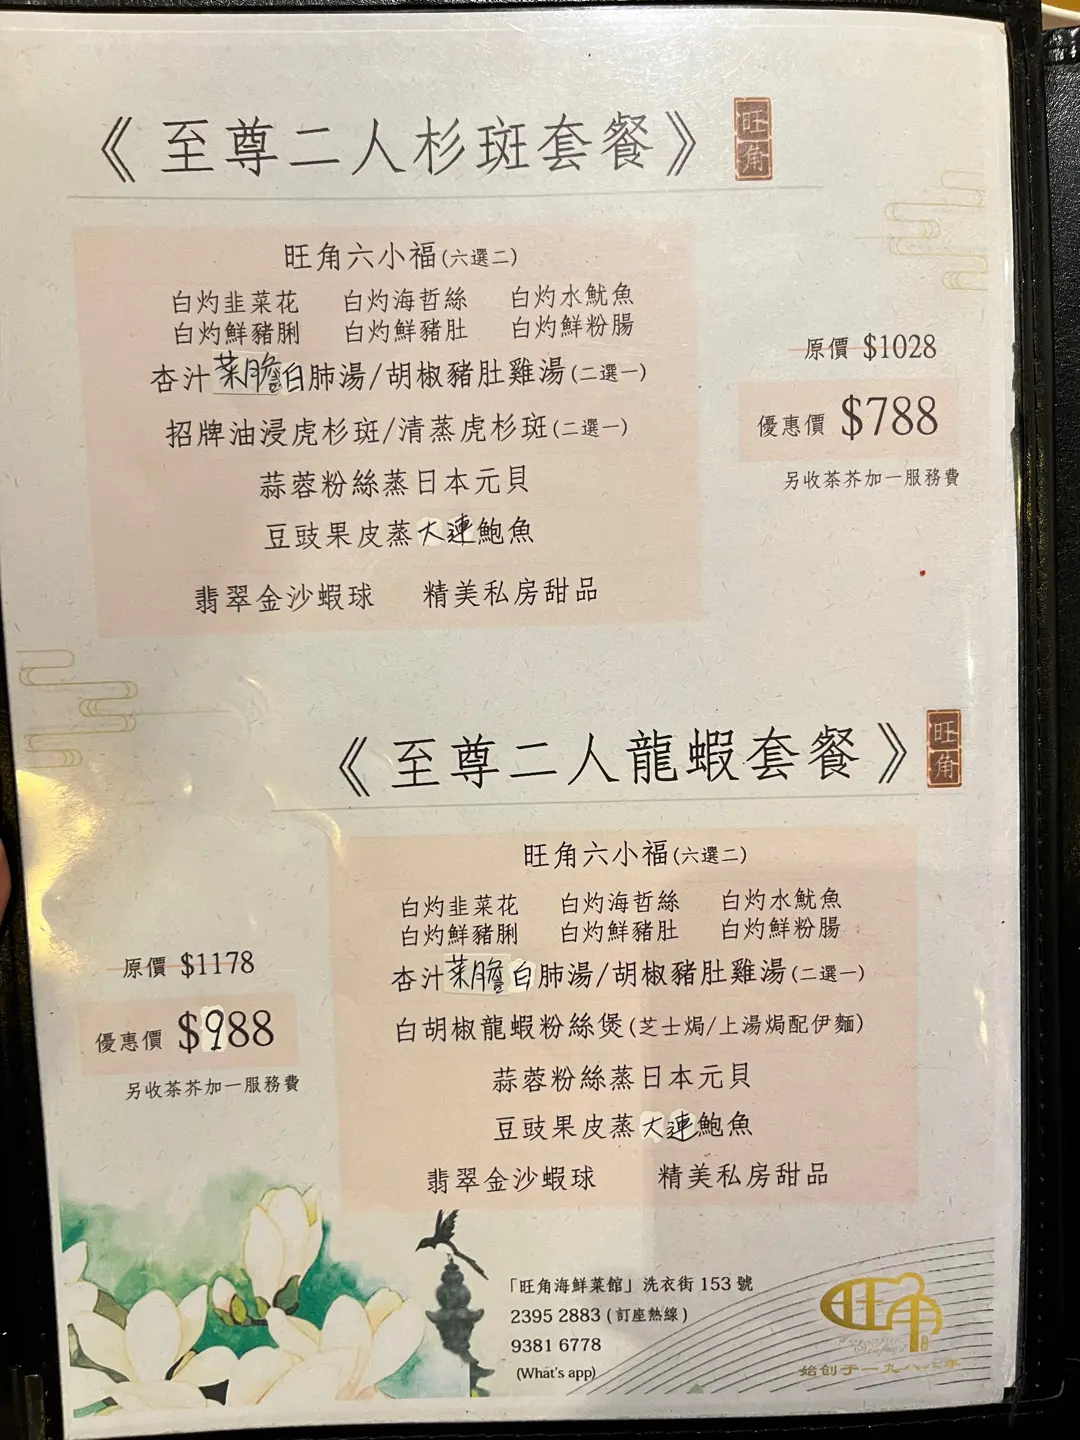 《至尊二人杉斑套餐》
旺角
旺角六小福(六選二)
白灼韭菜花 白灼海哲絲 白灼水魷魚
白灼鮮豬脷 白灼鮮豬肚 白灼鮮粉腸
杏汁菜膽白肺湯/胡椒豬肚雞湯(二選一)
招牌油浸虎杉斑/清蒸虎杉斑(二選一)
蒜蓉粉絲蒸日本元貝
豆豉果皮蒸大連鮑魚
翡翠金沙蝦球 精美私房甜品
原價 $1028
優惠價 $788
另收茶芥加一服務費
《至尊二人龍蝦套餐》
旺角
旺角六小福(六選二)
白灼韭菜花 白灼海哲絲 白灼水魷魚
白灼鮮豬脷 白灼鮮豬肚 白灼鮮粉腸
杏汁菜膽白肺湯/胡椒豬肚雞湯(二選一)
白胡椒龍蝦粉絲煲(芝士焗/上湯焗配伊麵)
蒜蓉粉絲蒸日本元貝
豆豉果皮蒸大連鮑魚
翡翠金沙蝦球 精美私房甜品
原價 $1178
優惠價 $988
另收茶芥加一服務費
「旺角海鮮菜館」洗衣街 153 號
2395 2883 (訂座熱線)
9381 6778
(What's app)
旺角